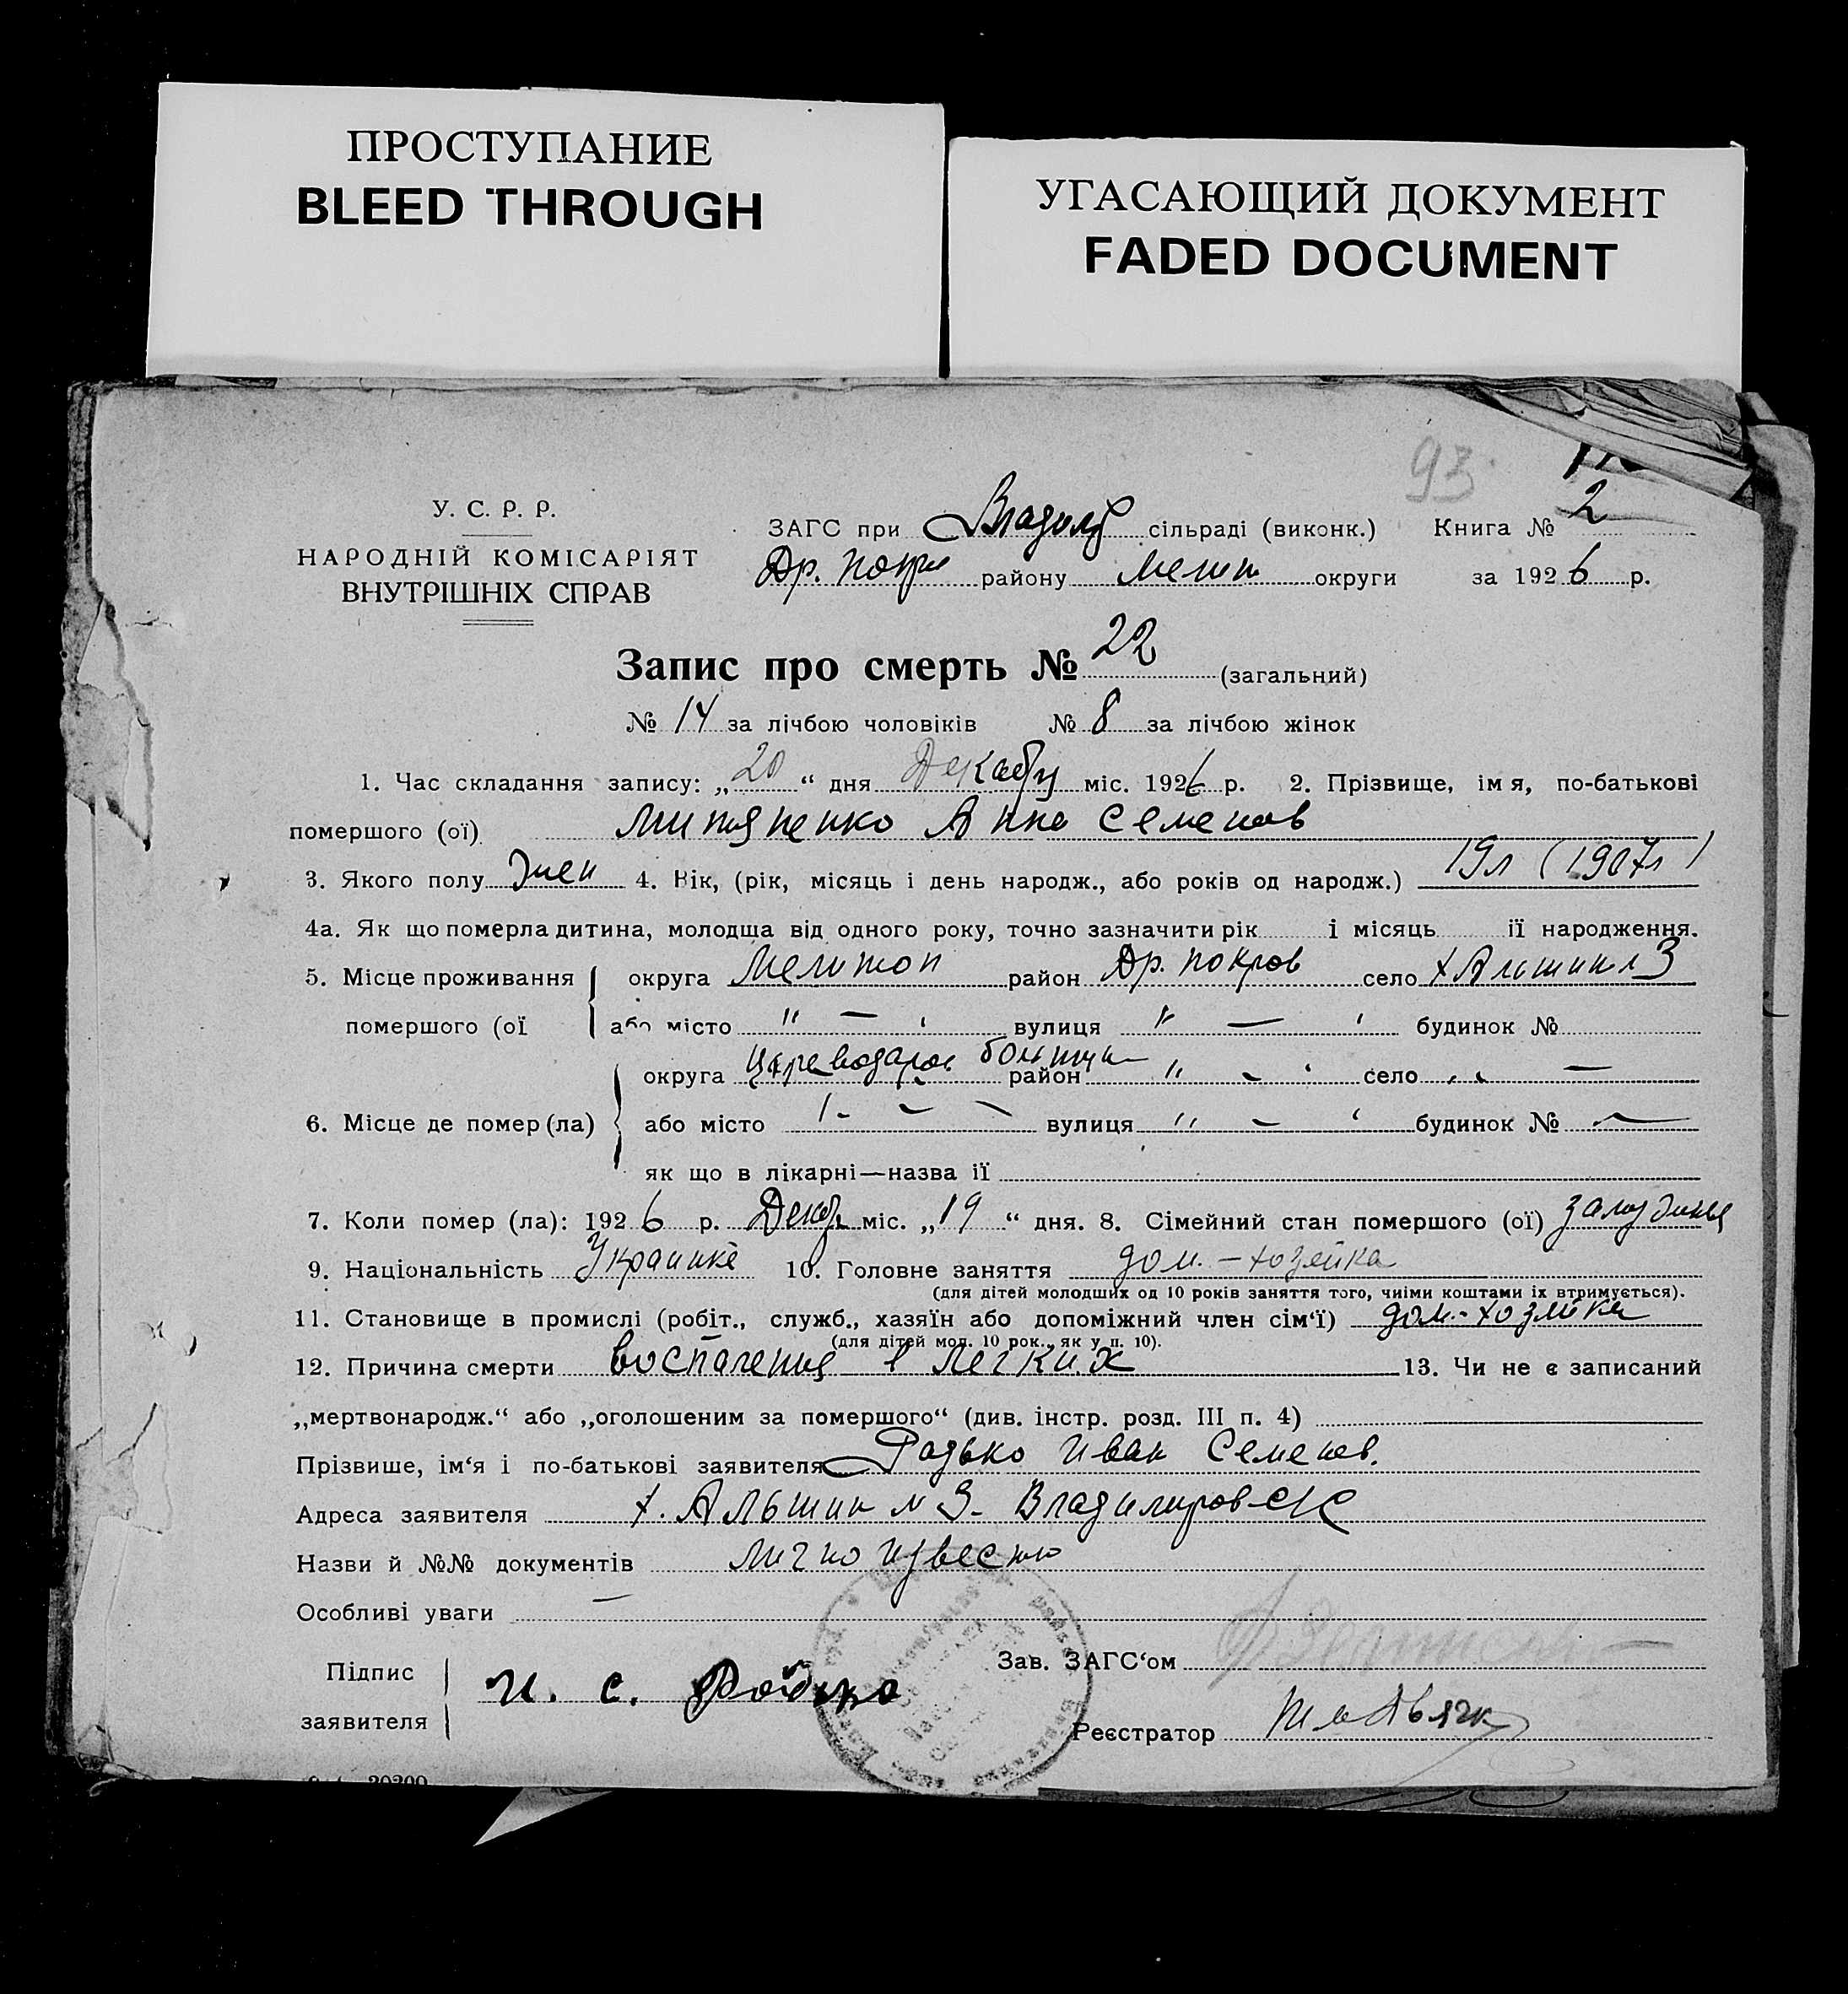 ПРОСТУПАНИЕ
BLEED THROUGH
УГАСАЮЩИЙ ДОКУМЕНТ
FADED DOCUMENT
93
У. С. Р. Р.
НАРОДНІЙ КОМІСАРІЯТ
ВНУТРІШНІХ СПРАВ
ЗАГС при Владим сільраді (виконк.) Книга № 2
Др. Покр району Мелит округи за 1926 р.
Запис про смерть № 22 (загальний)
№ 14 за лічбою чоловіків № 8 за лічбою жінок
1. Час складання запису: „20“ дня Декабр міс. 1926 р. 2. Прізвище, імя, по-батькові
помершого (ої) Митяненко Анна Семенов
3. Якого полу жен 4. Вік, (рік, місяць і день народж., або років од народж.) 19 л (1907 г)
4а. Як що померла дитина, молодша від одного року, точно зазначити рік і місяць ії народження.
5. Місце проживання округа Мелитоп район Др. Покров село х Альтин 3
помершого (ої або місто " — " вулиця " — " будинок №
округа Цареводаров больниц район " - " село " —
6. Місце де помер (ла) або місто вулиця " - " будинок № —
як що в лікарні—назва ії
7. Коли помер (ла): 1926 р. Декбр міс. „19“ дня. 8. Сімейний стан помершого (ої) замужняя
9. Національність Украинке 10. Головне заняття дом. - хозяйка
(для дітей молодших од 10 років заняття того, чиїми коштами їх втримується).
11. Становище в промислі (робіт., служб., хазяїн або допоміжний член сім‘ї) дом.-хозяйка
(для дітей мол. 10 рок., як у п. 10).
12. Причина смерти воспаления в легких 13. Чи не є записаний
„мертвонародж.“ або „оголошеним за помершого“ (див. інстр. розд. III п. 4)
Прізвише, ім‘я і по-батькові заявителя Радько Иван Семенов.
Адреса заявителя х. Альтин № 3 - Владимировск
Назви й №№ документів лично известно
Особливі уваги —
Підпис
заявителя И. С. Радько
Зав. ЗАГС‘ом
Реєстратор